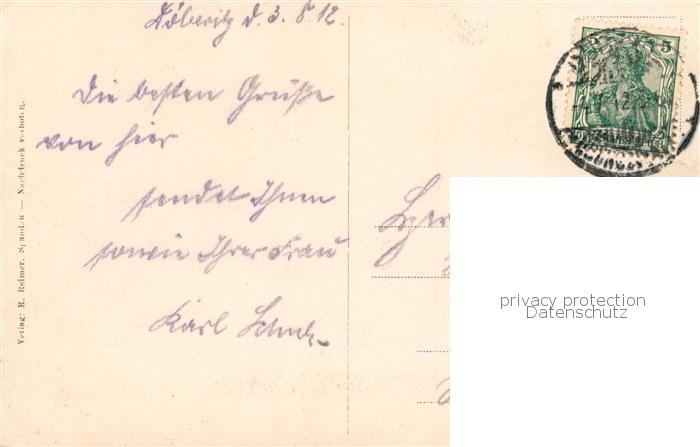 Döberitz d. 3. 8. 12.
Die besten Grüße
von hier
sendet Ihnen
sowie Ihrer Frau
Karl
Verlag: R. Reimer, Spandau — Nachdruck verboten.
5
privacy protection
Datenschutz